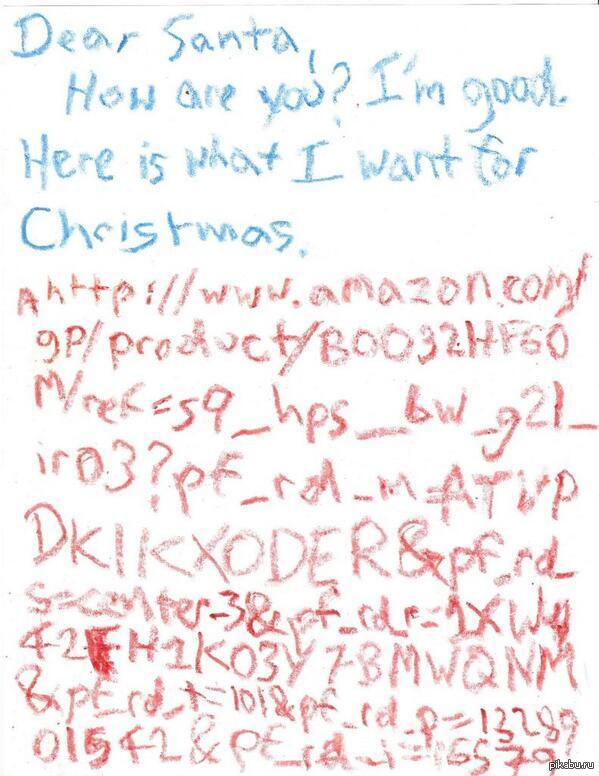 Dear Santa,
How are you? I'm good.
Here is what I want for
Christmas.
A http://www.amazon.com/
gp/product/B0032HF60
M/ref=s9_hps_bw_g21_
ir03?pf_rd_m=ATVP
DKIKXODER&pf_rd_
s=center-3&pf_rd_r=1XWY
42FH1K03Y7BMWQNM
&pf_rd_t=101&pf_rd_p=13289
01542&pf_rd_i=16579
pikabu.ru